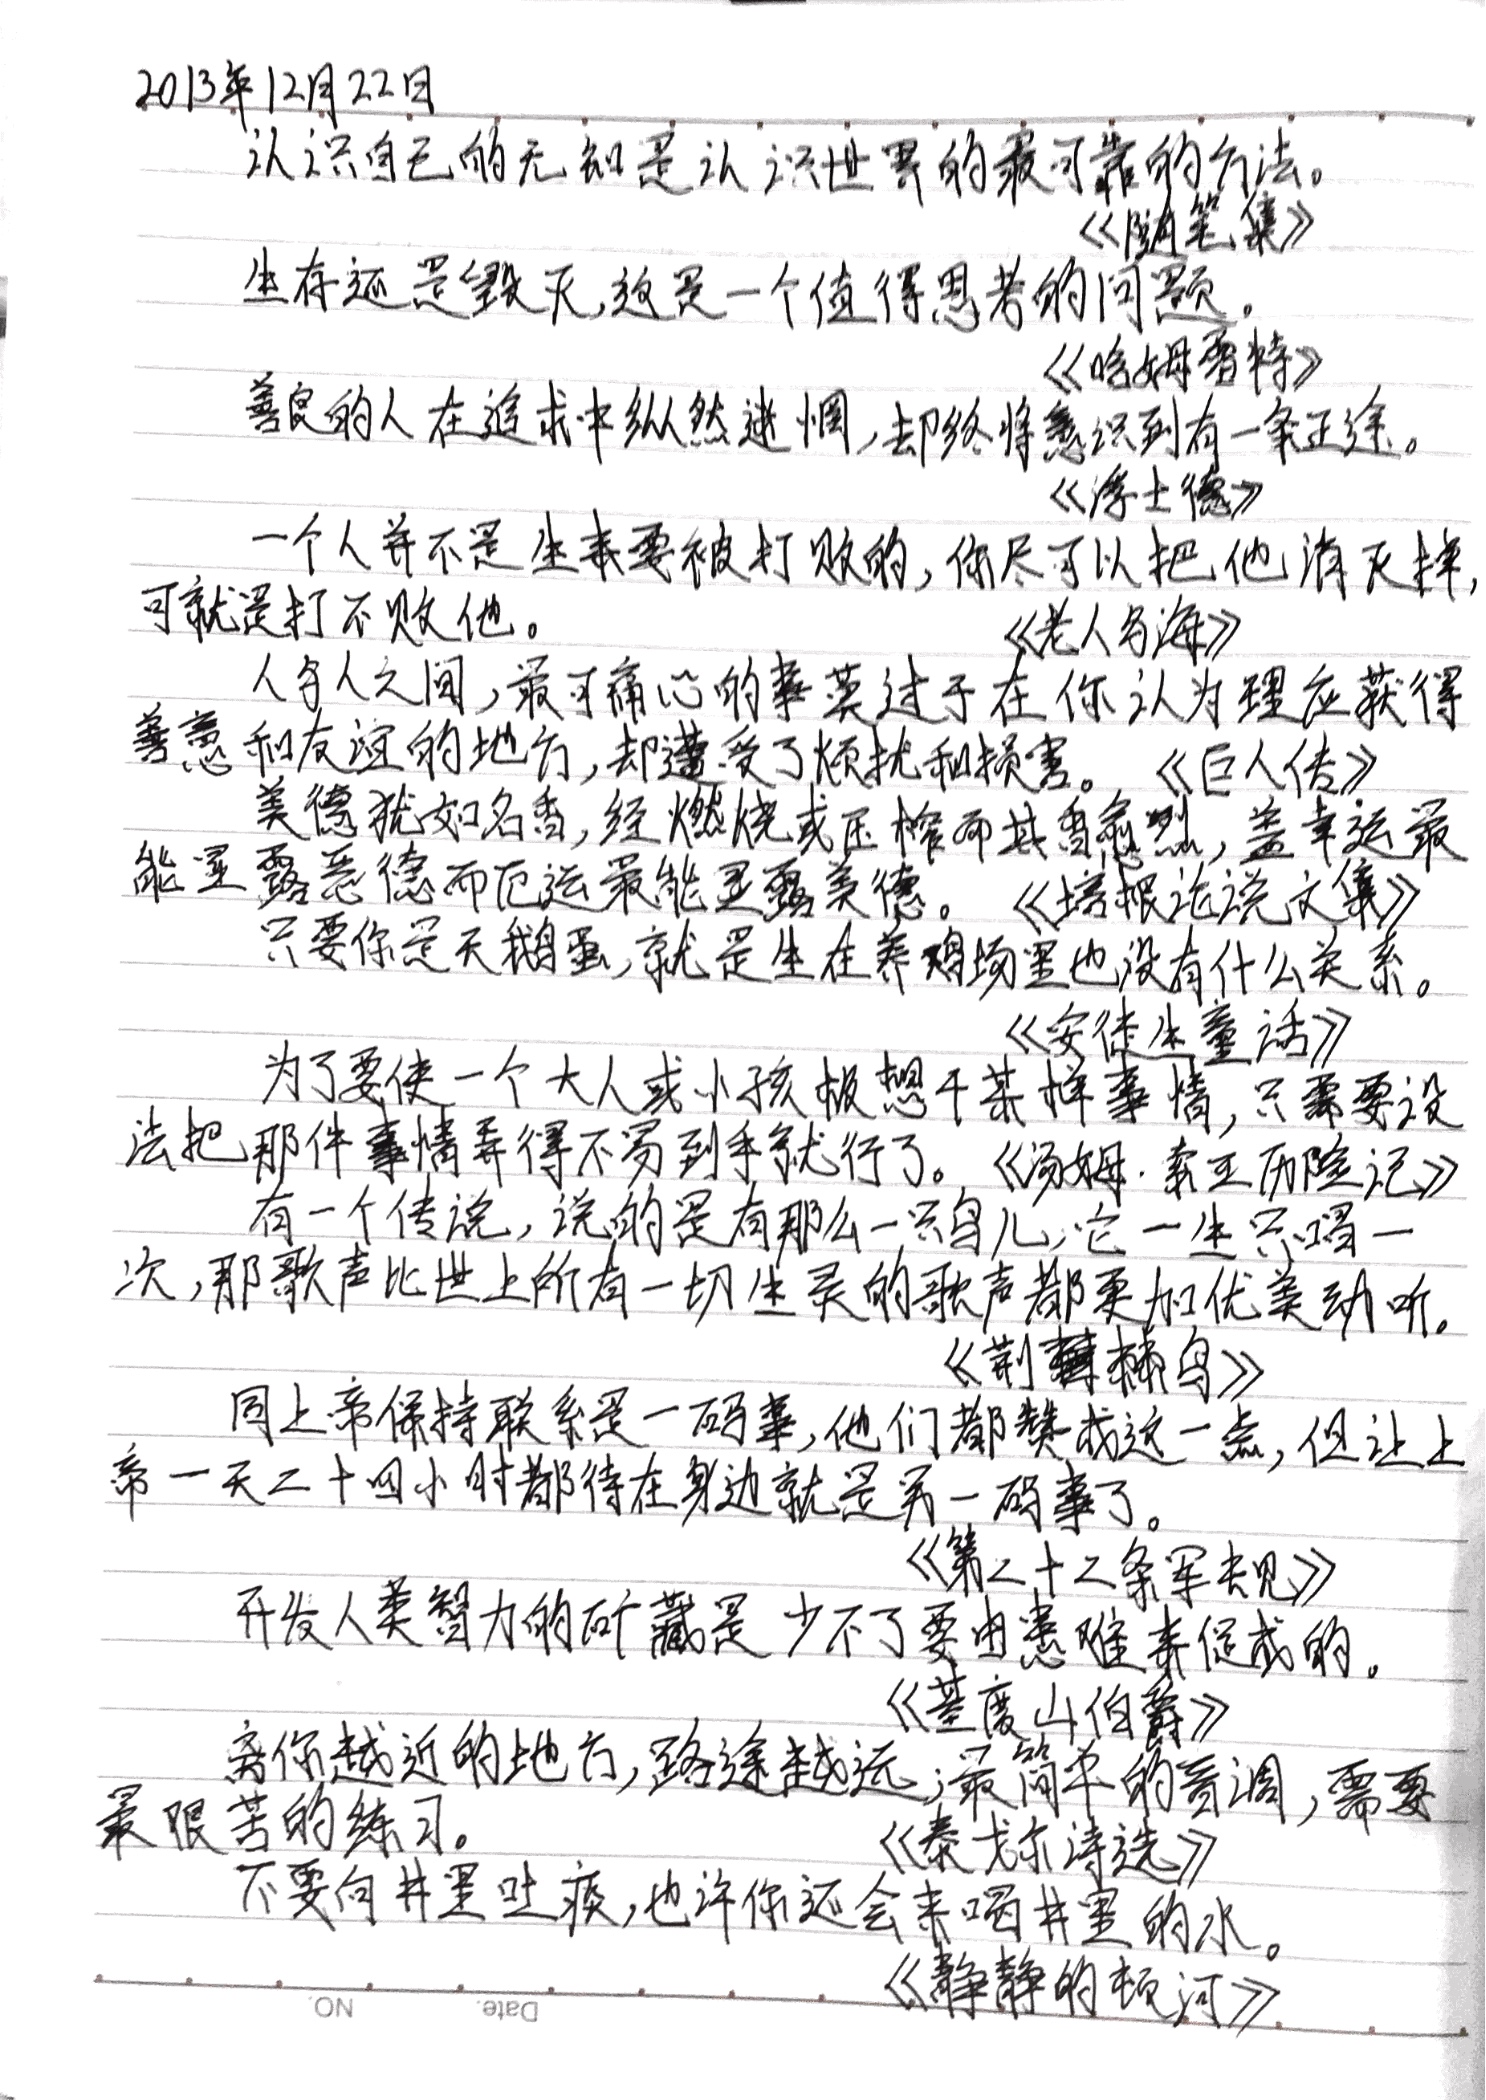 2013年12月22日
认识自己的无知是认识世界的最可靠的方法。
《随笔集》
生存还是毁灭,这是一个值得思考的问题。
《哈姆雷特》
善良的人在追求中纵然迷惘,却终将意识到有一条正途。
《浮士德》
一个人并不是生来要被打败的,你尽可以把他消灭掉,
可就是打不败他。 《老人与海》
人与人之间,最可痛心的事莫过于在你认为理应获得
善意和友谊的地方,却遭受了烦扰和损害。 《巨人传》
美德犹如名香,经燃烧或压榨而其香愈烈,盖幸运最
能显露恶德而厄运最能显露美德。 《培根论说文集》
只要你是天鹅蛋,就是生在养鸡场里也没有什么关系。
《安徒生童话》
为了要使一个大人或小孩极想干某样事情,只需要设
法把那件事情弄得不易到手就行了。 《汤姆·索亚历险记》
有一个传说,说的是有那么一只鸟儿,它一生只唱一
次,那歌声比世上所有一切生灵的歌声都更加优美动听。
《荆棘鸟》
同上帝保持联系是一码事,他们都赞成这一点,但让上
帝一天二十四小时都待在身边就是另一码事了。
《第二十二条军规》
开发人类智力的矿藏是少不了要由患难来促成的。
《基度山伯爵》
离你越近的地方,路途越远;最简单的音调,需要
最艰苦的练习。 《泰戈尔诗选》
不要向井里吐痰,也许你还会来喝井里的水。
《静静的顿河》
NO. Date.